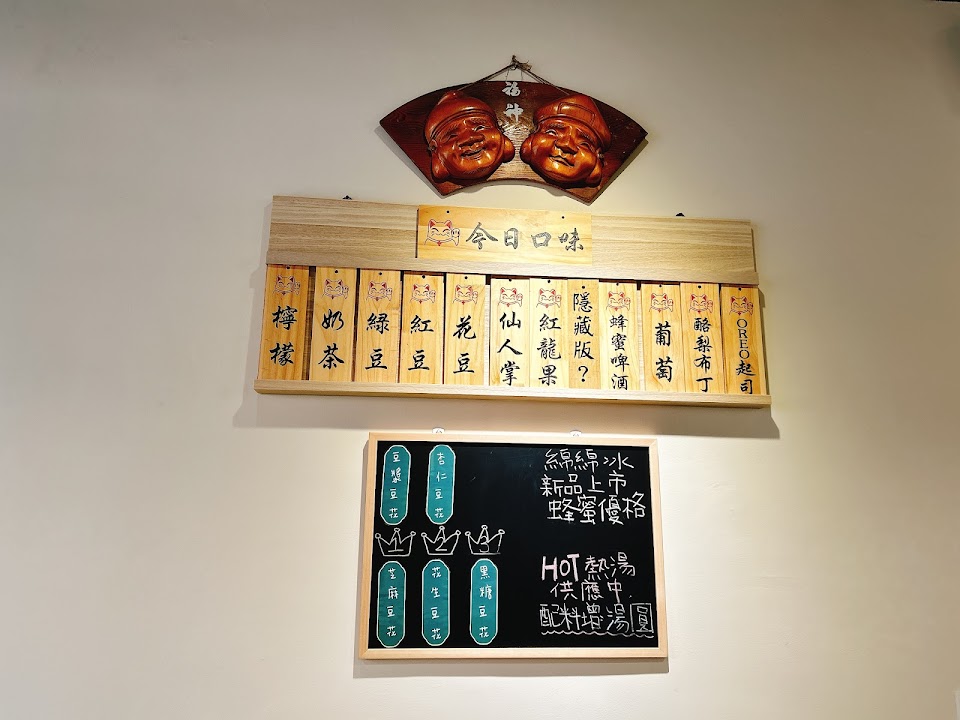 福神
今日口味
檸檬
奶茶
綠豆
紅豆
花豆
仙人掌
紅龍果
隱藏版？
蜂蜜啤酒
葡萄
酪梨布丁
OREO起司
豆漿豆花
杏仁豆花
綿綿冰
新品上市
蜂蜜優格
1
2
3
芝麻豆花
花生豆花
黑糖豆花
HOT熱湯
供應中
配料增湯圓